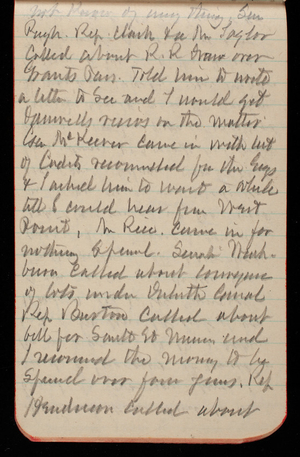 not know of any thing, Sen
Pugh. Rep. Clark & a Mr Taylor
Called about R.R. Grave over
Grants Pass. Told him to write
a letter to Sec and I would get
views on the matter.
Gen McKeever came in with list
of Cadets recommended for the Engs
& I asked him to wait a while
till I could hear from West
Point, Mr Rice. came in for
nothing Special. Senator Wash-
burn Called about
of lots under Duluth Canal
Rep Burton Called about
bill for Sault St Marie and
I recommend the money to be
Spend over four years. Rep
Henderson called about